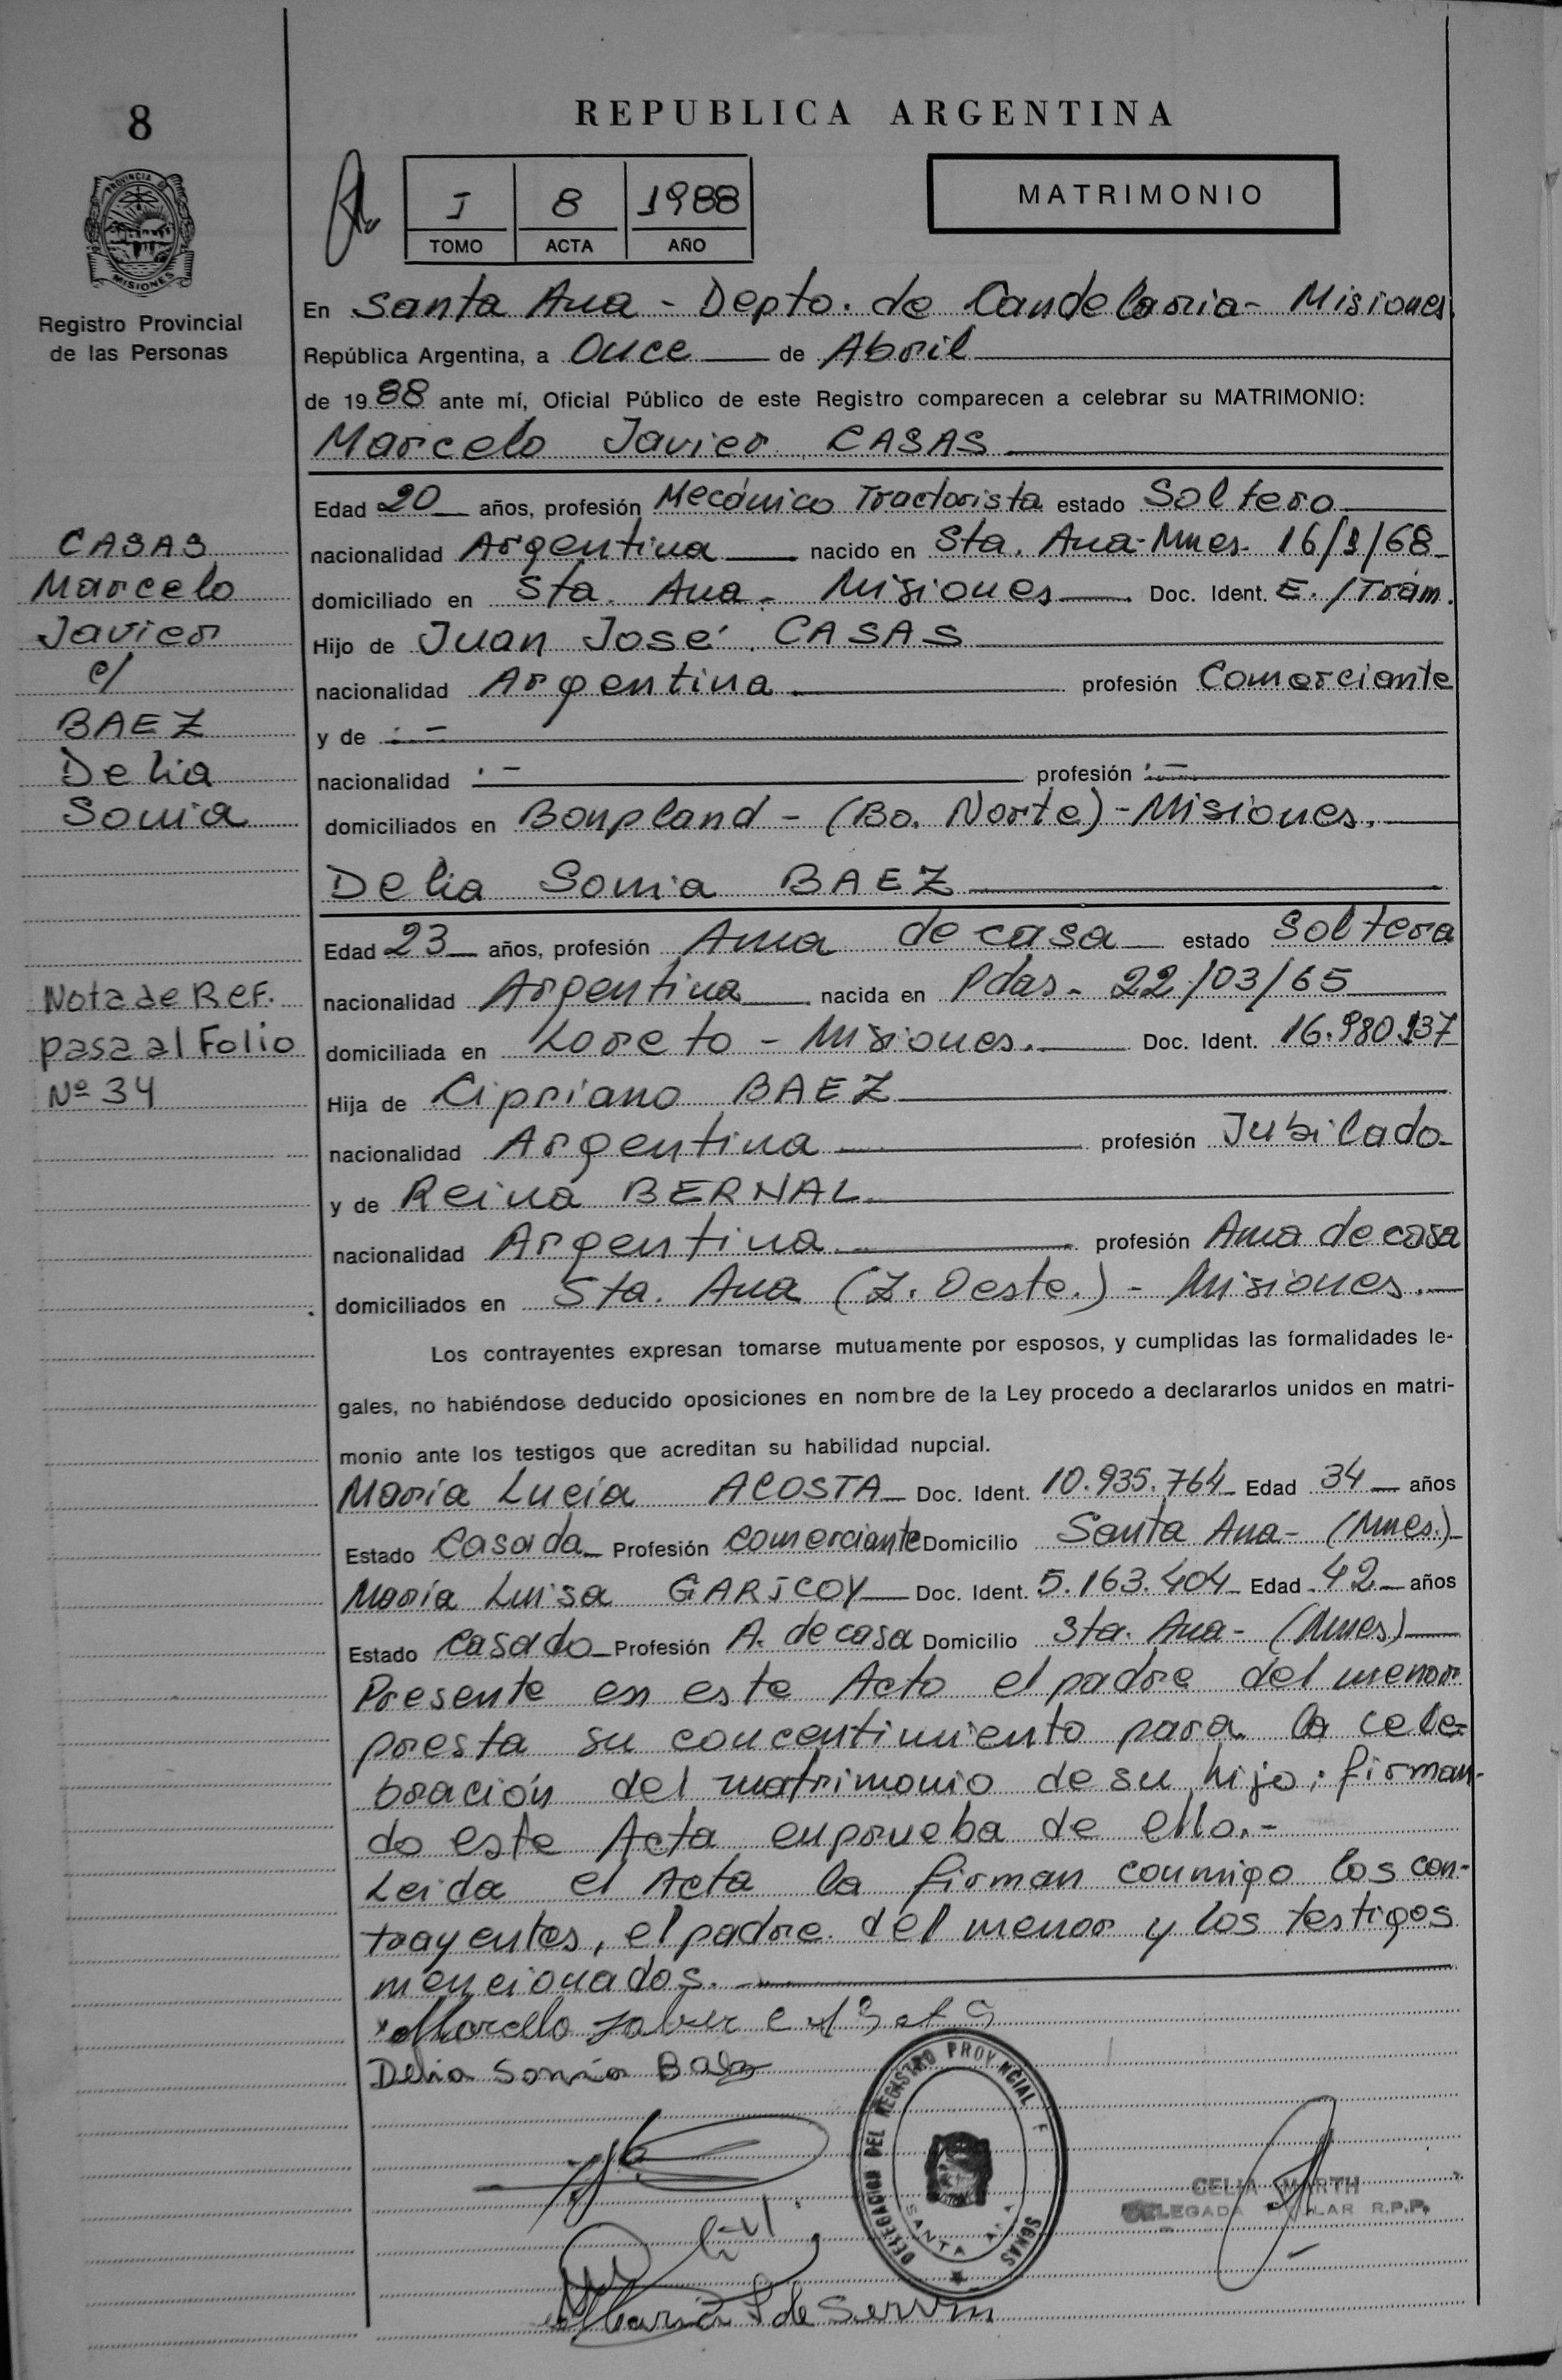 8
REPUBLICA ARGENTINA
I 8 1988
TOMO ACTA AÑO
MATRIMONIO
PROVINCIA DE
MISIONES
Registro Provincial
de las Personas
En Santa Ana - Depto. de Candelaria - Misiones.
República Argentina, a Once de Abril
de 1988 ante mí, Oficial Público de este Registro comparecen a celebrar su MATRIMONIO:
Marcelo Javier CASAS
Edad 20 años, profesión Mecánico Tractorista estado Soltero
nacionalidad Argentina nacido en Sta. Ana - Mnes. 16/1/68
domiciliado en Sta. Ana - Misiones. Doc. Ident. E./Trám.
Hijo de Juan José CASAS
nacionalidad Argentina profesión Comerciante
y de . -
nacionalidad . - profesión . -
domiciliados en Bonpland - (Bo. Norte) - Misiones.
Delia Sonia BAEZ
Edad 23 años, profesión Ama de casa estado Soltera
nacionalidad Argentina nacida en Pdas - 22/03/65
domiciliada en Loreto - Misiones. Doc. Ident. 16.980.137
Hija de Cipriano BAEZ
nacionalidad Argentina profesión Jubilado
y de Reina BERNAL
nacionalidad Argentina profesión Ama de casa
domiciliados en Sta. Ana (Z. Oeste.) - Misiones.
CASAS
Marcelo
Javier
c/
BAEZ
Delia
Sonia
Nota de Ref.
pasa al Folio
Nº 34
Los contrayentes expresan tomarse mutuamente por esposos, y cumplidas las formalidades le-
gales, no habiéndose deducido oposiciones en nombre de la Ley procedo a declararlos unidos en matri-
monio ante los testigos que acreditan su habilidad nupcial.
María Lucía ACOSTA Doc. Ident. 10.935.764 Edad 34 años
Estado Casada Profesión comerciante Domicilio Santa Ana - (Mnes.)
María Luisa GARICOY Doc. Ident. 5.163.404 Edad 42 años
Estado casado Profesión A. de casa Domicilio Sta. Ana - (Mnes)
Presente en este Acto el padre del menor
presta su concentimiento para la cele-
bración del matrimonio de su hijo; firman-
do este Acta en prueba de ello.-
Leida el Acta la firman conmigo los con-
trayentes, el padre del menor y los testigos
mencionados.
Marcelo Javier
Delia Sonia Baez
DELEGACION DEL REGISTRO PROVINCIAL
SANTA ANA
CELIA MARTH
DELEGADA R.P.P.
María de Servin